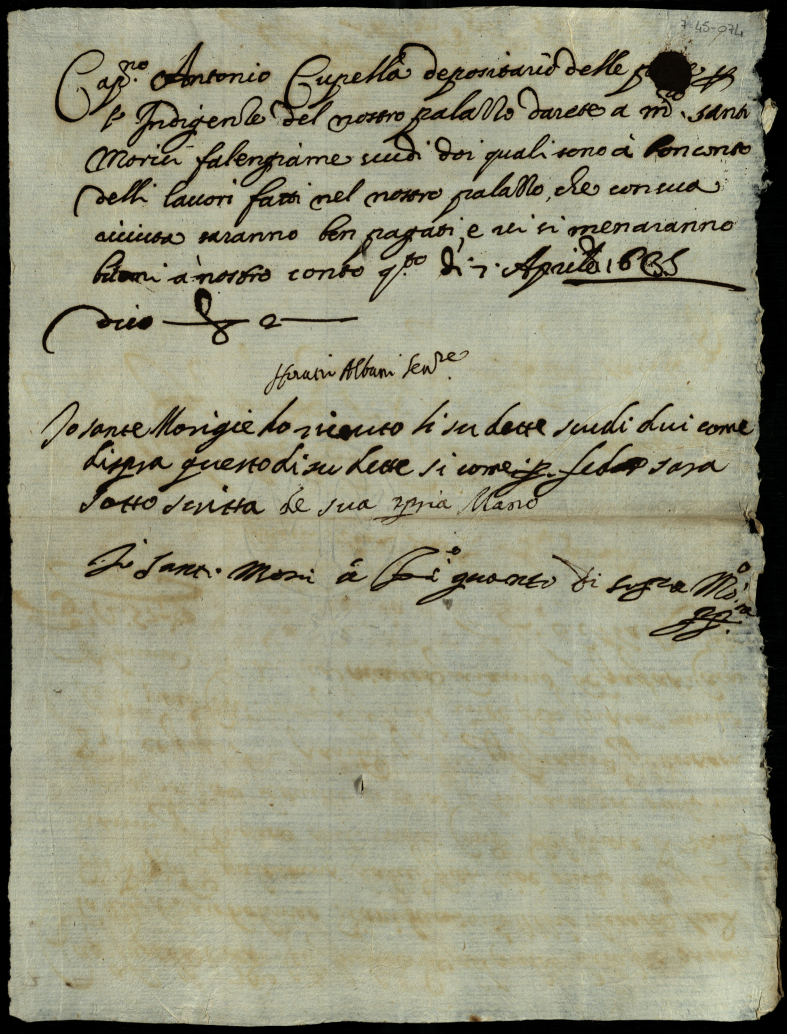 7-45-074
Cap.no Antonio Cupella depositario delle
p Indigenze del nostro palazzo darete a m.o Santi
Morici falengiame scudi doi quali sono à bon conto
delli lavori fatti nel nostro palazzo, che con sua
saranno ben pagati, e vi si menaranno
boni à nostro conto q.sto di 7. Aprile 1635
dico ▽ 2
Horatio Albani Sen.re
Io sante Morigie ho riceuto li su dette scudi dui come
di sopra questo di su dette si come p. fede sara
sotto scritta de sua ppria Mano
Io Santi Morici quanto di sopra Mo
ppa